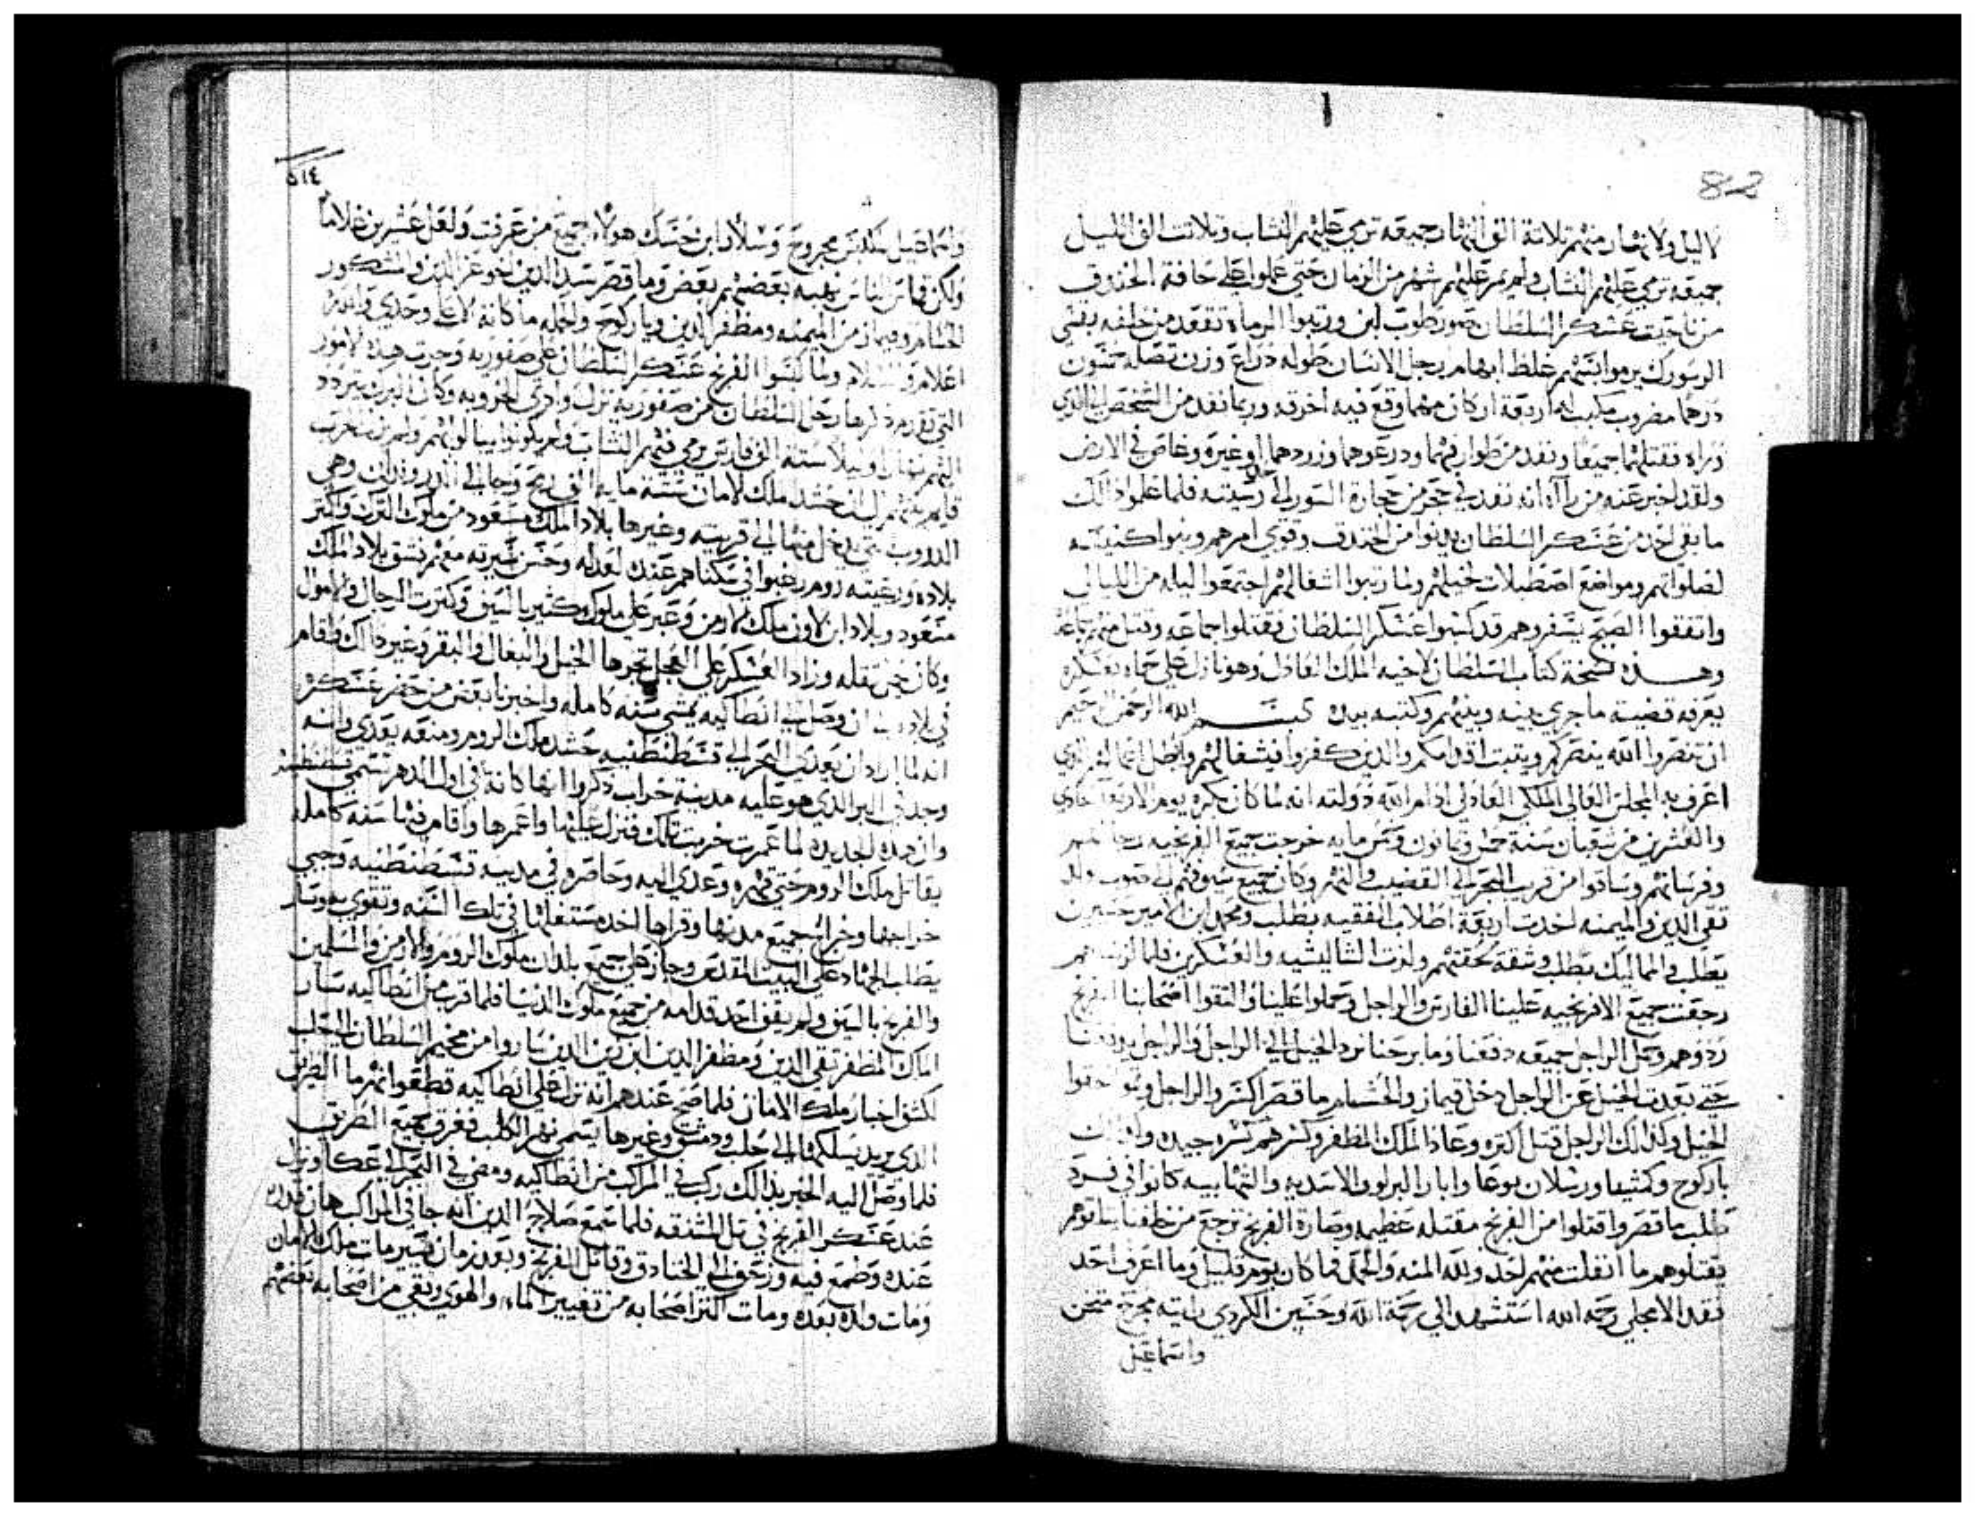 82
لا ليل ولا نهار منهم ثلاثة الف النهار جميعه ترمي عليهم النشاب وثلاثت الف الليل
جميعه ترمي عليهم النشاب ولم يمر عليهم شهر من الزمان حتى عملوا على حافة الخندق
من ناحيت عسكر السلطان صور طوب لبن ورتبوا الرماه تقعد من خلفه بقسي
الزنبورك يرموا بسهم غلظ ابهام رجل الانسان طوله دراع وزن نصله ستون
درهما مضروب مكبب له اربعة اركان مهما وقع فيه اخرقه وربما نفد من الشخص الى الذي
وراه فقتلهما جميعا ونفد من طوارقهما ودرعوهما وزردهما او غيره وغاص في الارض
ولقد اخبر عنه من رآاه انه نفد في حجر من حجارة السور الى ريشته فلما عملوا ذالك
ما بقى احد من عسكر السلطان يدنوا من الخندق وقوي امرهم وبنوا كنيسه
لصلواتهم ومواضع اصطبلات لخيلهم ولما رتبوا اشغالهم اجتمعوا ليله من الليالي
واتفقوا الصبح يسفروهم قد كبسوا عسكر السلطان فقتلوا جماعه وقتل منهم جماعه
وهذه نسخة كتاب السلطان لاخيه الملك العادل وهو نازل على حماه بعسكره
يعرفه قضية ما جري بينه وبينهم وكتبه بيده بسم الله الرحمن الرحيم
ان تنصروا الله ينصركم ويتبت اقدامكم والذين كفروا فتعسا لهم واضل اعمالهم الذي
اعرف به المجلس العالي الملكي العادلي ادام الله دولته انه لما كان بكره يوم الاربعا حادي
والعشرين من شعبان سنة خمس وثمانون وخمس مايه خرجت جميع الفرنجيه رجالتهم
وفرسانهم وساقوا من قريب البحر الى القضيب والنهر وكان جميع سيوفهم الى صوب ولد
تقي الدين والميمنه اخدت اربعة اطلاب الفقيه بطلب ومحمد ابن الامير حسين
بطلب والمماليك بطلب وشقة لحقتهم ولدت الشاليشيه والعسكرين فلما
زحفت جميع الافرنجيه علينا الفارس والراجل وحملوا علينا والتقوا اصحابنا الفرنج
ردوهم وحمل الراجل جميعه دفعنا وما برحنا نرد الخيل الى الراجل والراجل يدفعنا
حتى بعدت الخيل عن الراجل دخل قيماز والحسام ما قصر اكسر والراجل
الخيل وكذالك الراجل قتل اكتره وعاد الملك المظفر وكسرهم كسره جيده
ياركوح وكمشبا ورسلان بوغا وابار البرلو والاسديه والشهابيه كانوا في فرد
طلب ما قصروا قتلوا من الفرنج مقتله عظيمه وصارة الفرنج ترجع من خلفنا يتلقوهم
يقتلوهم ما انفلت منهم احد ولله المنه والحمد فما كان يوم قليل وما اعرف احد
فقد الا مجلي رحمه الله استشهد الى رحمة الله وحسين الكردي رايته مجرح متخن
واسماعيل
٥١٤
واسماعيل مكدس مجروح وسلار ابن خسك هولاء جميع من عرفت ولعل عشرين غلاما
ولكن قماش الناس نهبه بعضهم بعض وما قصر سيد الدين اخو عز الدين والمشكور
الحسام وقيماز من الميمنه ومظفر الدين وياركوح والجمله ما كانة الا على وحدي والله
اعلام والسلام ولما كبسوا الفرنج عسكر السلطان على صفوريه وجرت هذه الامور
التي تقدم ذكرها رحل السلطان من صفوريه نزل وادي الخروبه وكان البرك يتردد
اليهم نهارا وليلا ستة الف فارس ترمي فيهم النشاب ولم يكونوا يبالوا بهم ولم
بينهم الى ان حشد ملك الامان ستة مايه الف رمح وجا الى الدروندات وهي
الدروب التي يدخل منها الى قريبه وغيرها بلاد الملك مسعود من ملوك الترك واكتر
بلاده ورعيته روم رغبوا في سكناهم عنده لعدله وحسن سيرته معهم فشق بلاد الملك
مسعود وبلاد ابن لاون ملك الارمن وعبر على ملوك كثير بالسيف وكثرت الرجال والاموال
وكان يجي نقله وزاد العسكر على العجل تجرها الخيل والبغال والبقر وغير ذالك واقام
في بلاده الى ان وصل الى انطاكيه يمشي سنه كامله واخبرنا بعض من حضر عسكره
انه لما اراد ان يعدي البحر الى قسطنطنيه حشد ملك الروم ومنعه يعدي وانه
وجد في البر الذي هو عليه مدينة خراب دكروا انها كانة في اول الدهر تسمى قسطنطنيه
وان هذه الجديده لما عمرت خربت تلك فنزل عليها واعمرها واقام فيها سنه كامله
يقاتل ملك الروم حتى قهره وعدي اليه وحاصره في مدينه قسطنطنيه وجبي
خراجها وخراج جميع مدنها وقراها اخده مستغلها في تلك السنه وتقوي به وسار
يطلب الجهاد على البيت المقدس وجاز على جميع بلدان ملوك الروم والارمن والمسلمين
والفرنج بالسيف ولم يقف احد قدامه من جميع ملوك الدنيا فلما قرب من انطاكيه سار
الملك المظفر تقي الدين ومظفر الدين ابن زين الدين ساروا من مخيم السلطان الى حلب
لكشف اخبار ملك الامان فلما صح عندهم انه نزل على انطاكيه قطعوا نهر ما الطريق
الذي يريد يسلكها الى حلب ودمشق وغيرها يسمى نهر الكلب فغرق جميع الطريق
فلما وصل اليه الخبر بذالك ركب في المراكب من انطاكيه ومضي في البحر الى عكا ونزل
عند عسكر الفرنج في تل المشنقه فلما سمع صلاح الدين انه جا في المراكب هان قدره
عنده وطمع فيه وزحف الى الخنادق وقاتل الفرنج وبعد زمان يسير مات ملك الامان
ومات ولده بعده ومات اكتر اصحابه من تغيير الماء والهوي وبقي من اصحابه بعضهم